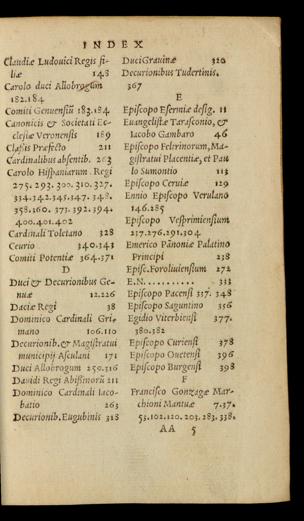 INDEX
Claudiæ Ludouici Regis fi-
liæ 148
Carolo duci Allobrogum
182.184
Comiti Genuensiũ 183.184
Canonicis & Societati Ec-
clesiæ Veronensis 189
Classis Præfecto 211
Cardinalibus absentib. 263
Carolo Hispaniarum Regi
275. 293. 300. 310. 327.
334. 342. 345. 347. 348.
358. 360. 371. 392. 394.
400. 401. 402
Cardinali Toletano 328
Ceurio 340. 343
Comiti Potentiæ 364. 371
D
Duci & Decurionibus Ge-
nuæ 12.226
Daciæ Regi 38
Dominico Cardinali Gri-
mano 106.110
Decurionib. & Magistratui
municipij Asculani 171
Duci Allobrogum 250.316
Dauidi Regi Abissinorũ 211
Dominico Cardinali Iaco-
batio 263
Decurionib. Eugubinis 318
Duci Grauinæ 320
Decurionibus Tudertinis.
367
E
Episcopo Eserniæ desig. 11
Euangelistæ Tarasconio, &
Iacobo Gambaro 46
Episcopo Feltrinorum, Ma-
gistratui Placentiæ, et Pau
lo Sumontio 113
Episcopo Ceruiæ 129
Ennio Episcopo Verulano
146.285
Episcopo Vesprimiensium
237.276.291.304
Emerico Pãnoniæ Palatino
Principi 238
Episc. Foroliuiensium 272
E.N. . . . . . . . . . . 333
Episcopo Pacensi 337. 348
Episcopo Saguntino 356
Egidio Viterbiensi 377.
380.382
Episcopo Curiensi 378
Episcopo Ouetensi 396
Episcopo Burgensi 398
F
Francisco Gonzagæ Mar-
chioni Mantuæ 7.37.
53.102.120.203.283.338.
AA 5